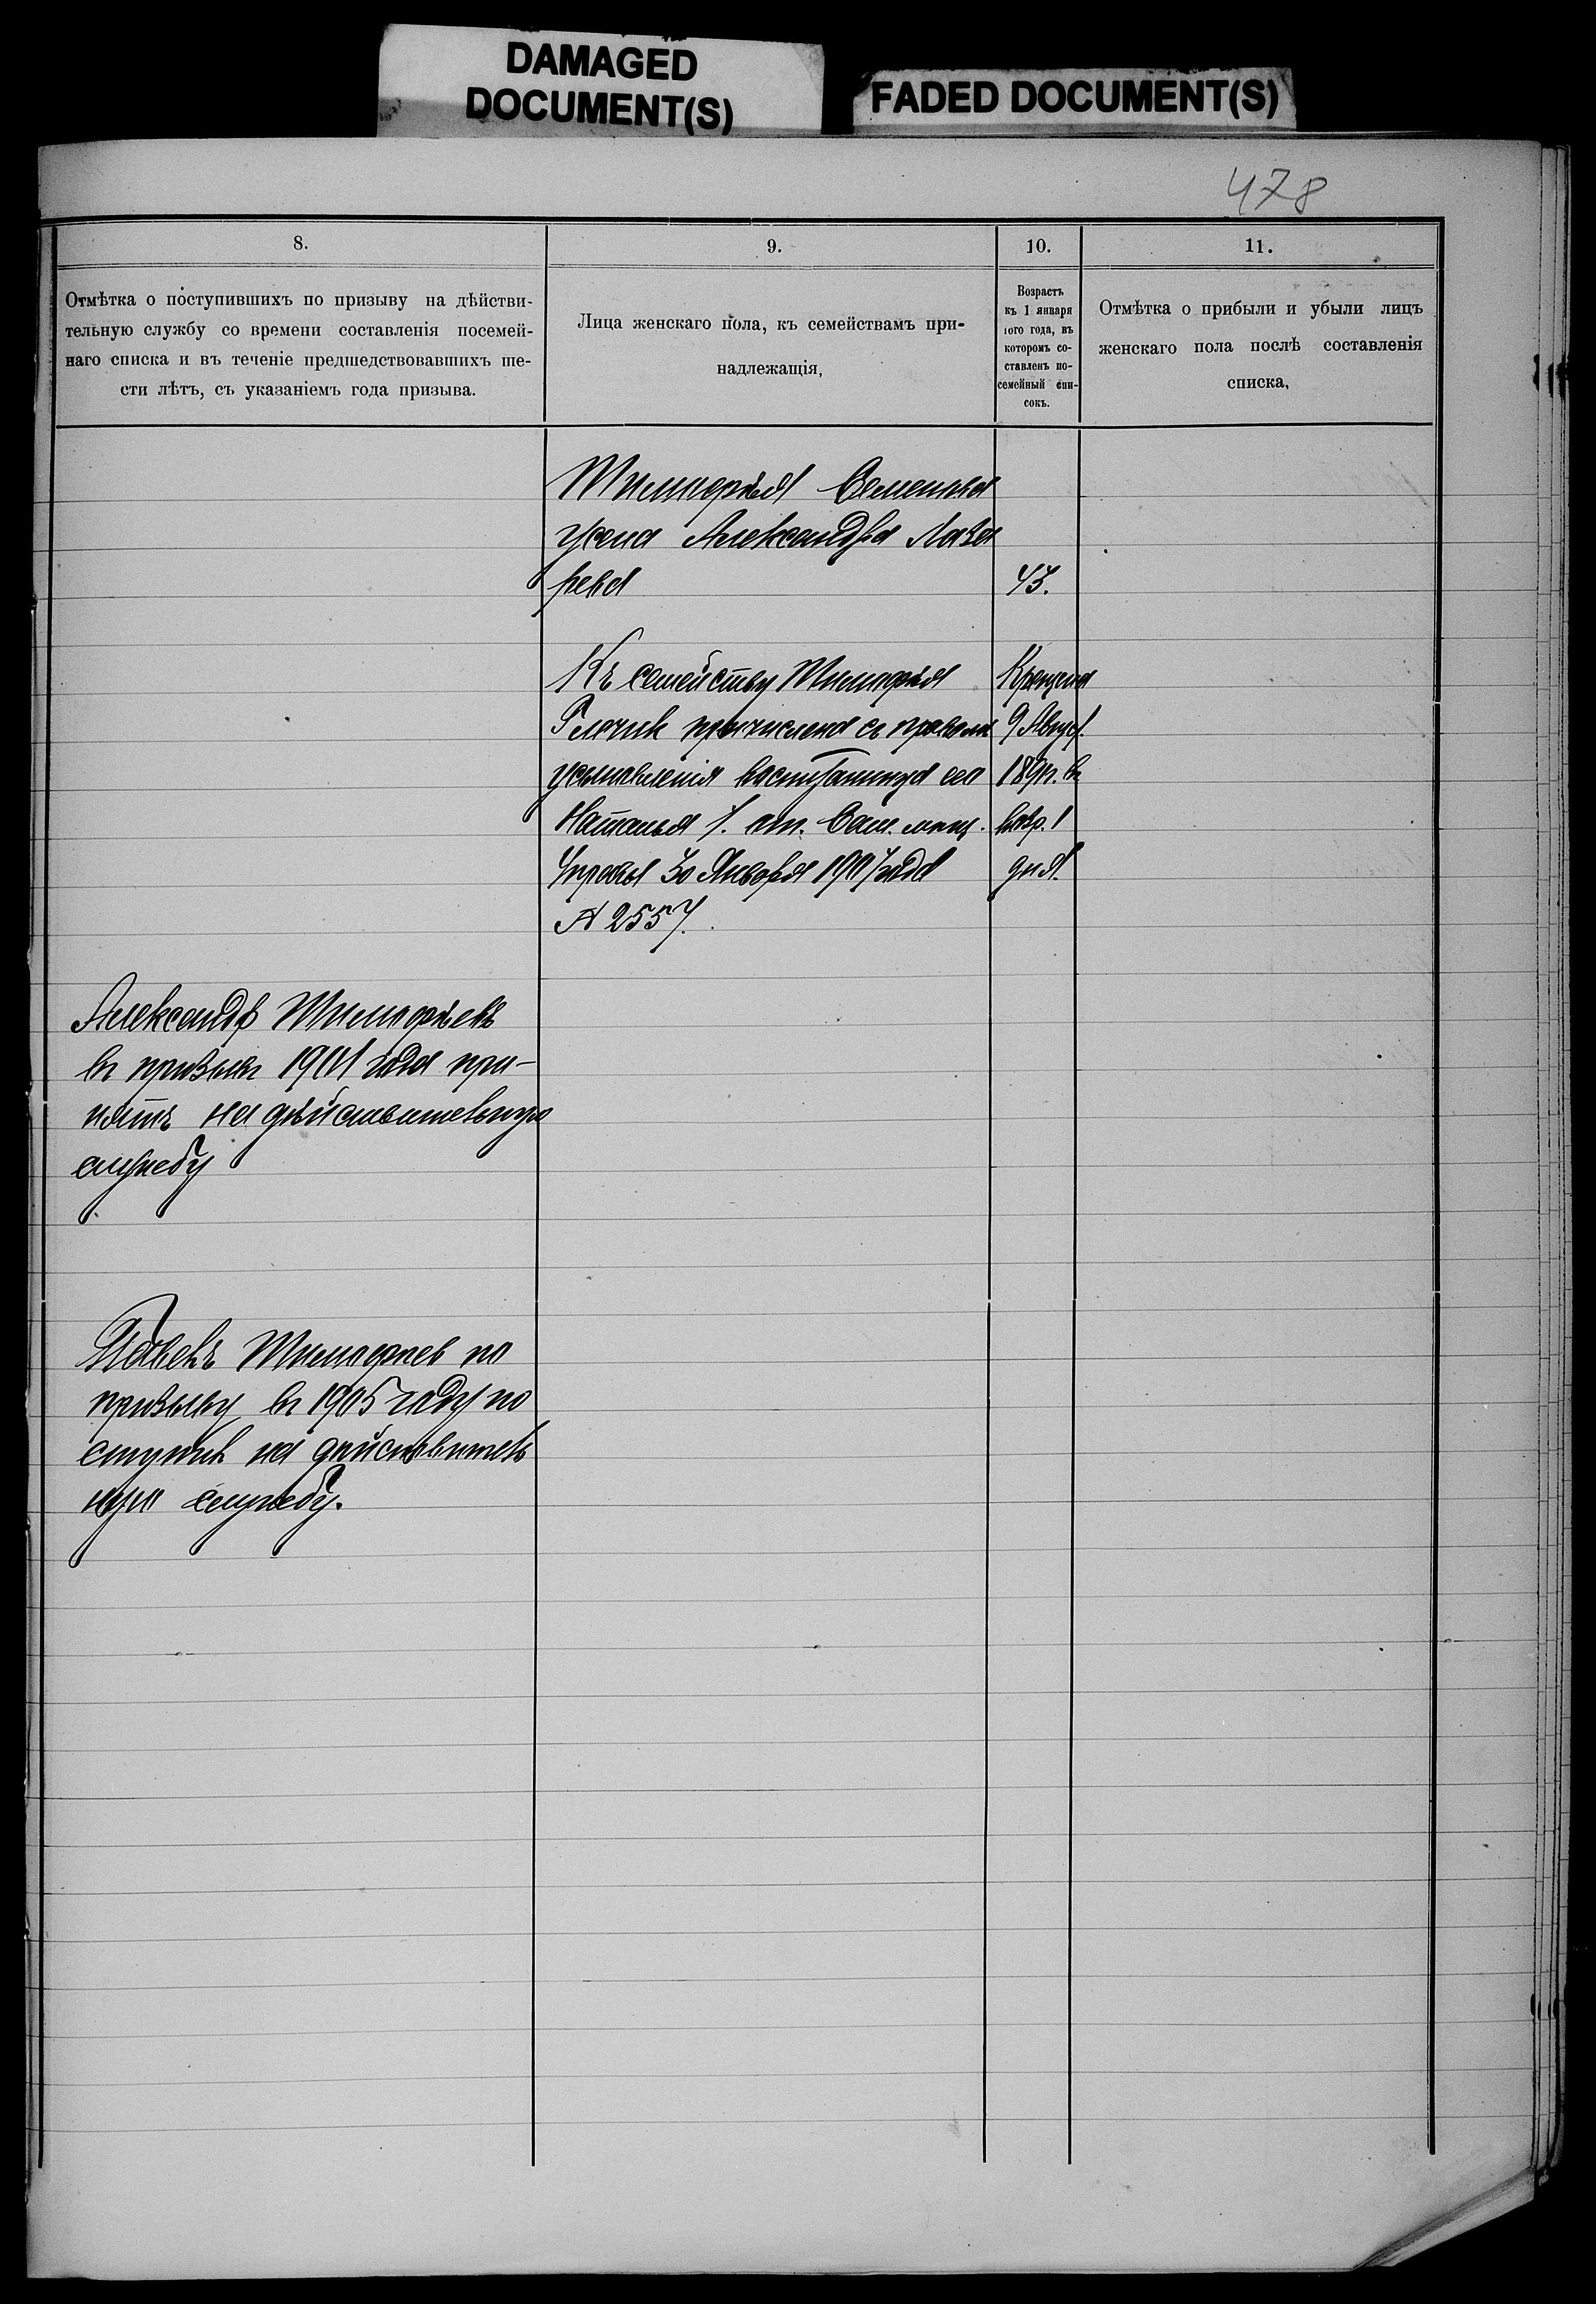 DAMAGED
DOCUMENT(S)
FADED DOCUMENT(S)
478
8.
Отмѣтка о поступившихъ по призыву на дѣйстви-
тельную службу со времени составленія посемей-
наго списка и въ теченіе предшедствовавшихъ ше-
сти лѣтъ, съ указаніемъ года призыва.
9.
Лица женскаго пола, къ семействамъ при-
надлежащія,
10.
Возрастъ
къ 1 января
того года, въ
которомъ со-
ставленъ по-
семейный спи-
сокъ.
11.
Отмѣтка о прибыли и убыли лицъ
женскаго пола послѣ составленія
списка,
Тимофѣя Семенова
жена Александра Лаза
рева
43.
Къ семейству Тимофѣя
причислена съ правомъ
усыновленія воспитанница его
Наталья от. Сам. мѣщ.
Управы 30 Января 1907 года
№ 2557.
Крещена
9 Август.
въ
возр. 1
дня.
Александръ Тимофѣевъ
въ призывъ 1901 года при-
нятъ на дѣйствительную
службу
Яковъ Тимофеев по
призыву въ 1905 году по
ступилъ на дѣйствитель
ную службу.